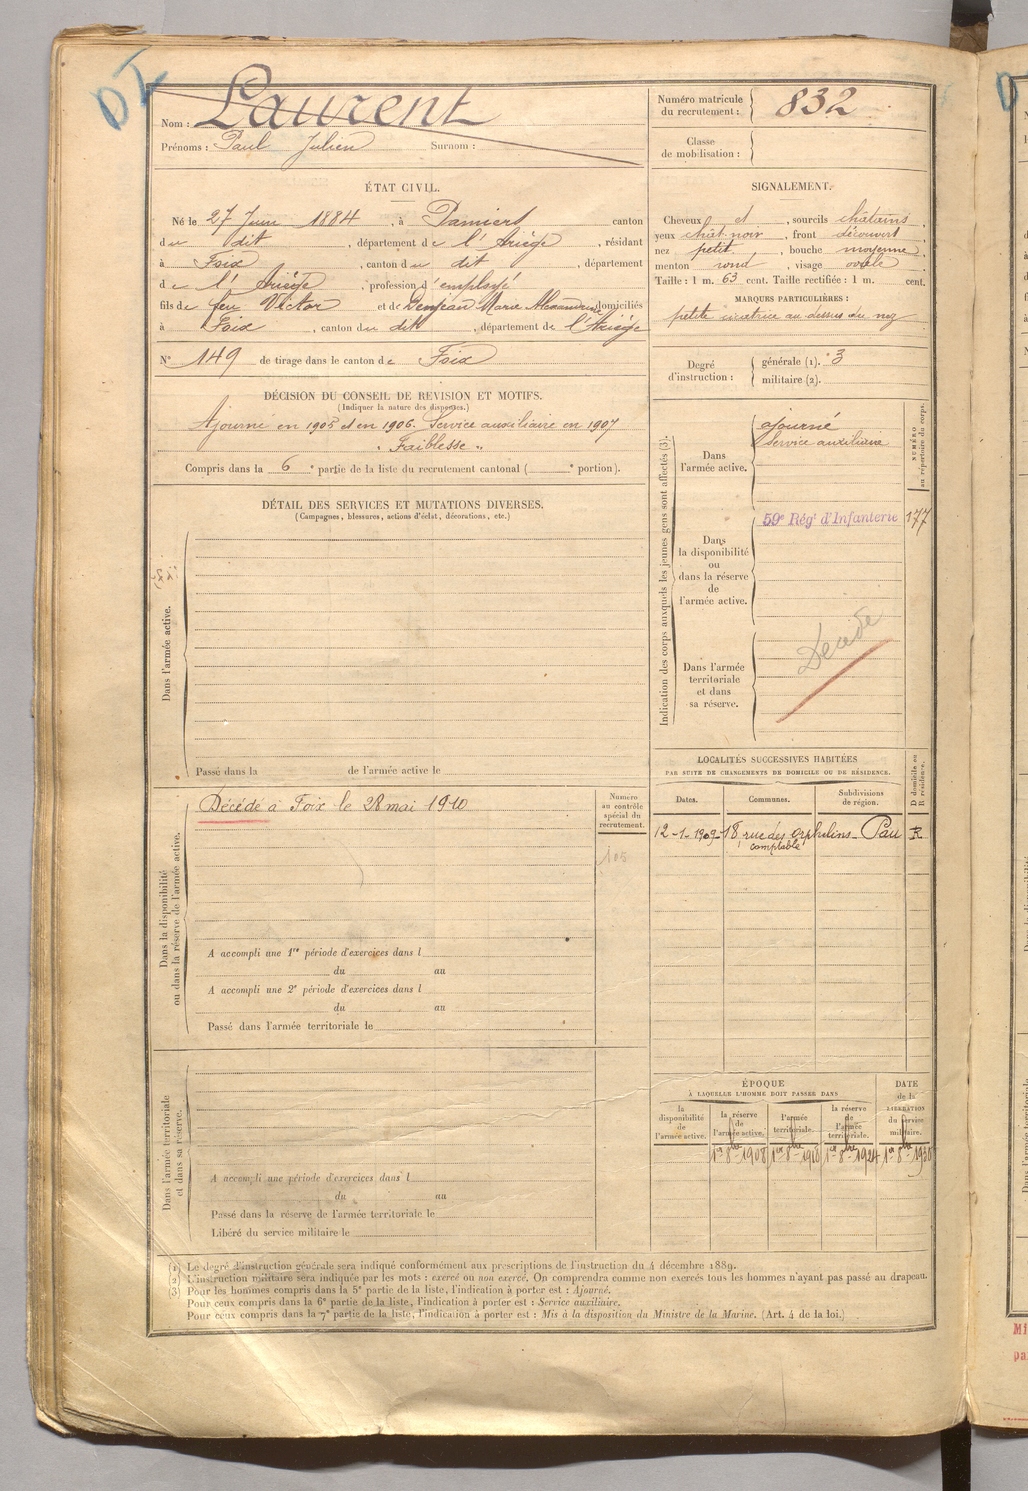 DI
Nom : Laurent
Prénoms : Paul Julien Surnom :
Numéro matricule du recrutement : 832
Classe de mobilisation :
ÉTAT CIVIL.
Né le 27 Juin 1884, à Pamiers canton
du dit, département de l'Ariège, résidant
à Foix, canton du dit, département
de l'Ariège, profession d'employé
fils de feu Victor et de Denjean Marie Alexandrine domiciliés
à Foix, canton du dit, département de l'Ariège
N° 149 de tirage dans le canton de Foix
SIGNALEMENT.
Cheveux et, sourcils châtains,
yeux chât. noir, front découvert
nez petit, bouche moyenne,
menton rond, visage ovale
Taille : 1 m. 63 cent. Taille rectifiée : 1 m. cent.
MARQUES PARTICULIÈRES :
petite cicatrice au dessus du nez
Degré d'instruction :
générale (1). 3
militaire (2).
DÉCISION DU CONSEIL DE REVISION ET MOTIFS.
(Indiquer la nature des dispenses.)
Ajourné en 1905 et en 1906. Service auxiliaire en 1907
" Faiblesse "
Compris dans la 6e partie de la liste du recrutement cantonal ( e portion).
DÉTAIL DES SERVICES ET MUTATIONS DIVERSES.
(Campagnes, blessures, actions d'éclat, décorations, etc.)
Dans l'armée active.
Passé dans la de l'armée active le
Indication des corps auxquels les jeunes gens sont affectés (3).
NUMÉRO
au répertoire du corps.
Dans l'armée active.
ajourné
Service auxiliaire
Dans la disponibilité ou dans la réserve de l'armée active.
59e Régt d'Infanterie 177
Dans l'armée territoriale et dans sa réserve.
Décédé
Dans la disponibilité
ou dans la réserve de l'armée active.
Décédé à Foix le 28 mai 1910
Numéro au contrôle spécial du recrutement.
105
A accompli une 1re période d'exercices dans l
du au
A accompli une 2e période d'exercices dans l
du au
Passé dans l'armée territoriale le
LOCALITÉS SUCCESSIVES HABITÉES
PAR SUITE DE CHANGEMENTS DE DOMICILE OU DE RÉSIDENCE.
Dates. Communes. Subdivisions de région. D domicile ou R résidence.
12-1-1909 18 rue des Orphelins Pau R
comptable
Dans l'armée territoriale
et dans sa réserve.
A accompli une période d'exercices dans l
du au
Passé dans la réserve de l'armée territoriale le
Libéré du service militaire le
ÉPOQUE
À LAQUELLE L'HOMME DOIT PASSER DANS
la disponibilité de l'armée active. la réserve de l'armée active. l'armée territoriale. la réserve de l'armée territoriale.
DATE de la LIBÉRATION du service militaire.
1er 8bre 1908 1er 8bre 1918 1er 8bre 1924 1er 8bre 1930
(1) Le degré d'instruction générale sera indiqué conformément aux prescriptions de l'instruction du 4 décembre 1889.
(2) L'instruction militaire sera indiquée par les mots : exercé ou non exercé. On comprendra comme non exercés tous les hommes n'ayant pas passé au drapeau.
(3) Pour les hommes compris dans la 5e partie de la liste, l'indication à porter est : Ajourné.
Pour ceux compris dans la 6e partie de la liste, l'indication à porter est : Service auxiliaire.
Pour ceux compris dans la 7e partie de la liste, l'indication à porter est : Mis à la disposition du Ministre de la Marine. (Art. 4 de la loi.)